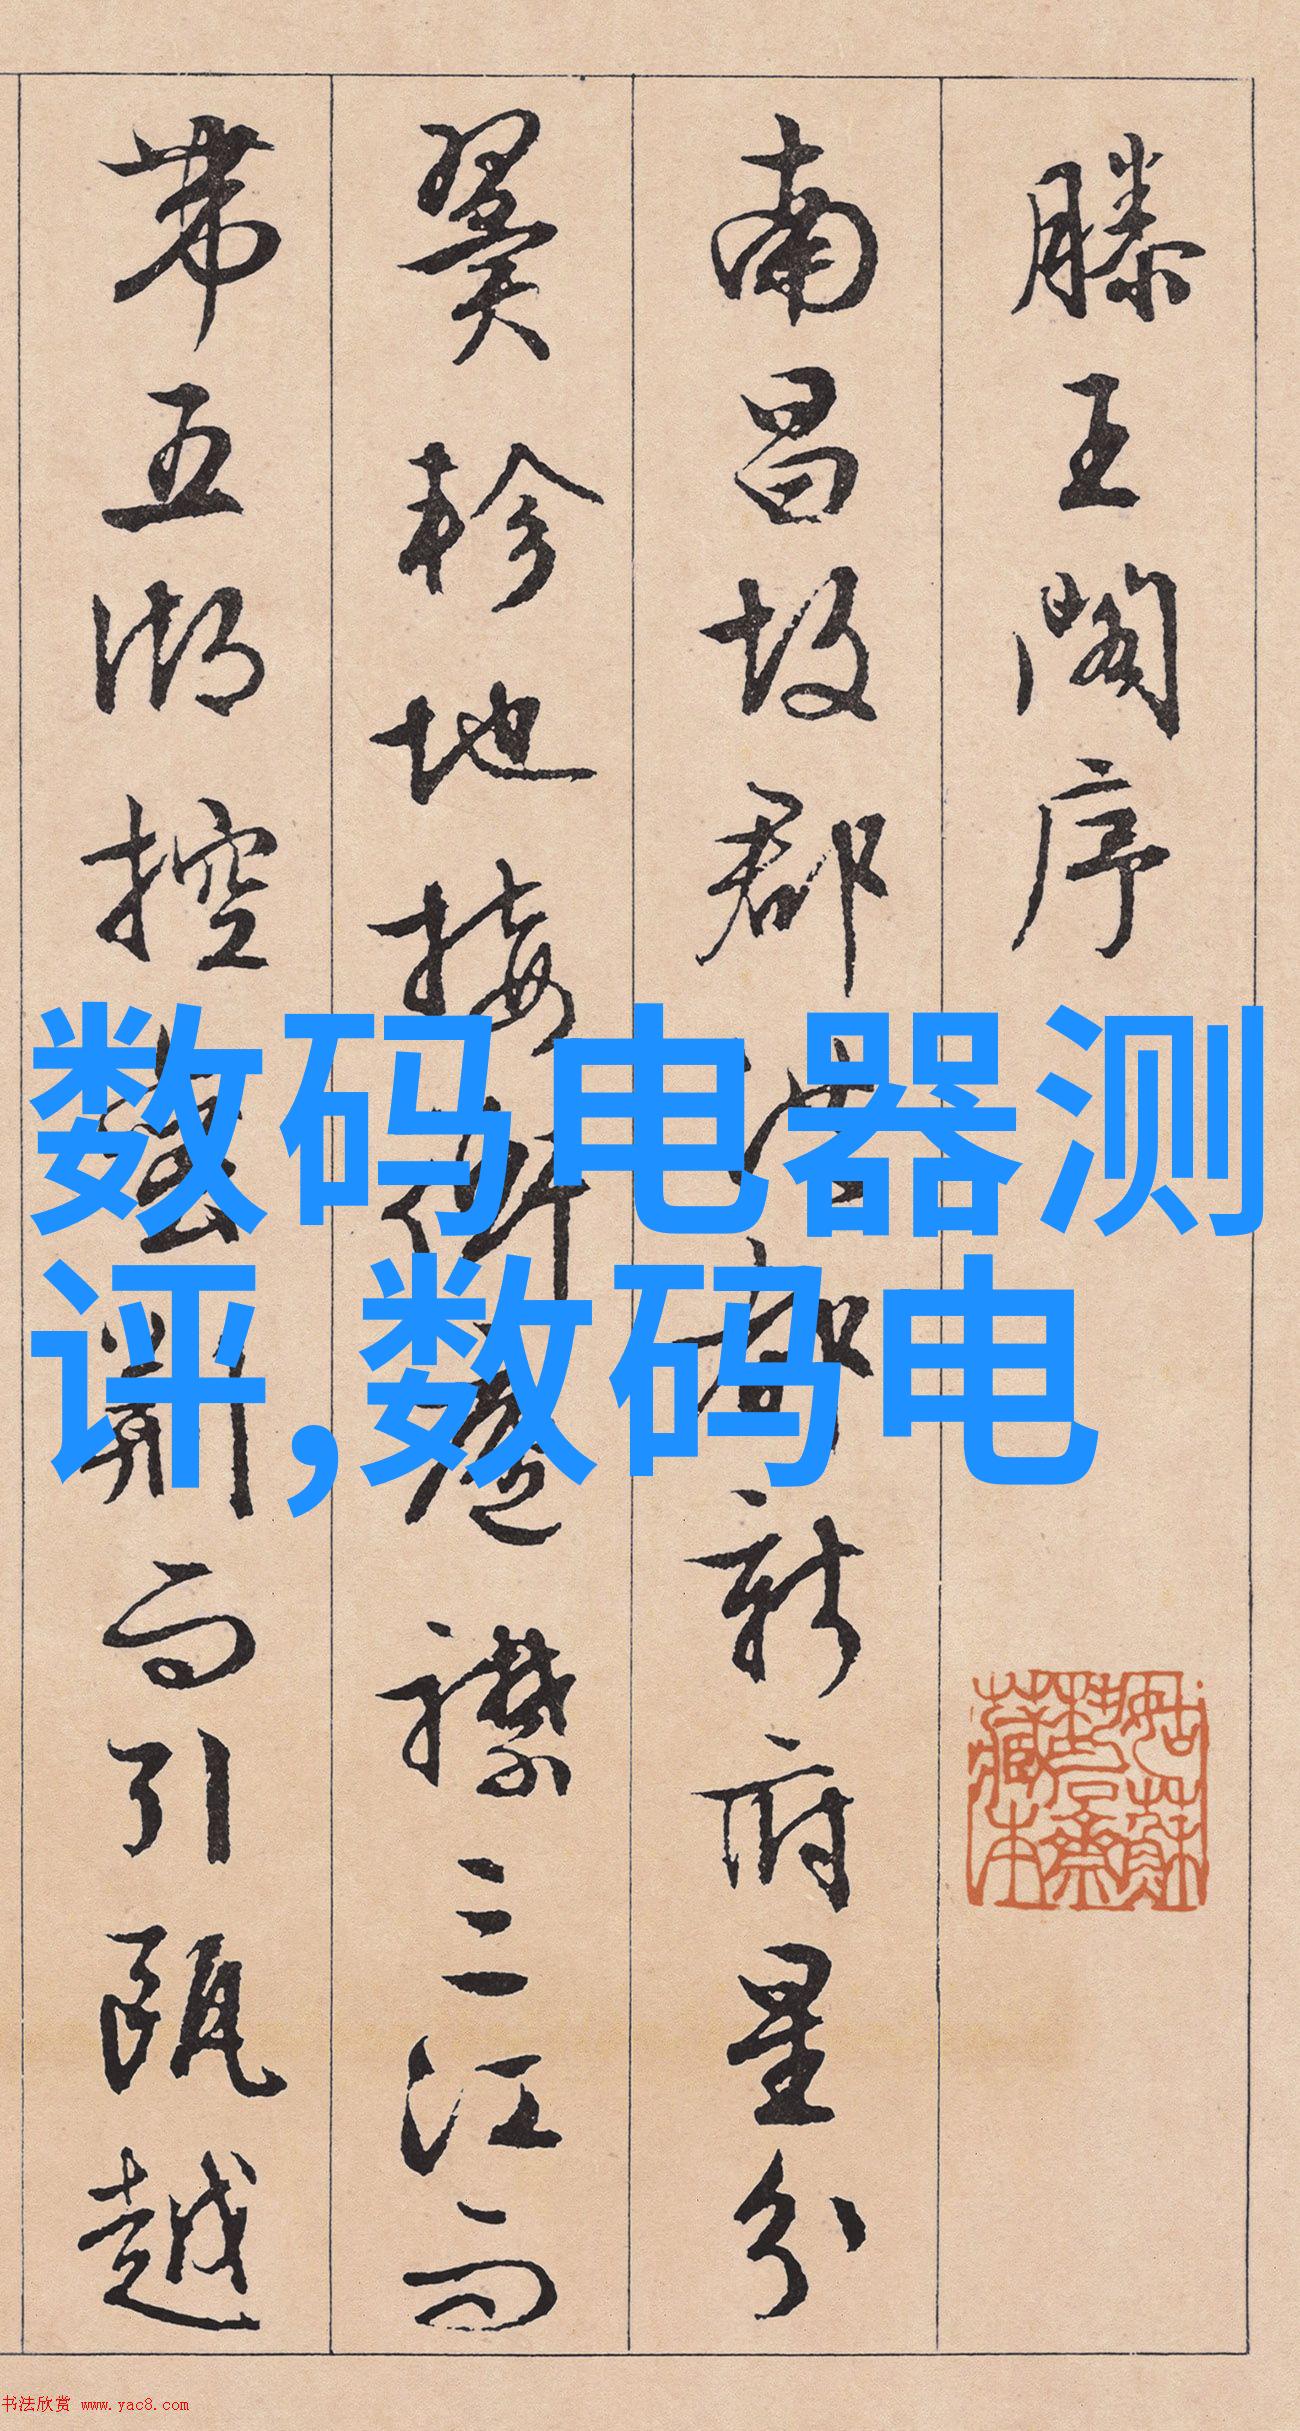 滕王阁序
南昌故郡洪都新府星分
翼轸地接衡庐襟三江而
带五湖控蛮荆而引瓯越
数码电器测
评,数码电
书法欣赏 www.yac8.com